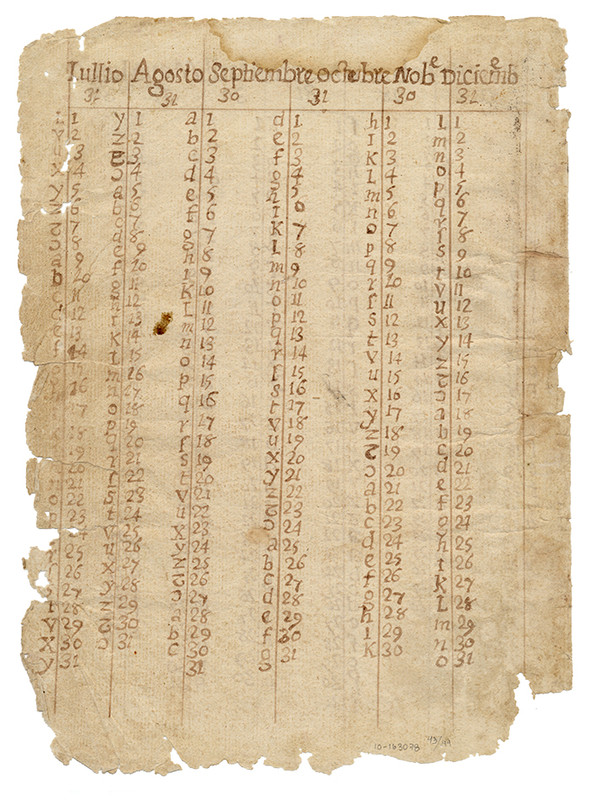 Iullio Agosto Septiembre octubre Nobe Diciemb
31 31 30 31 30 31
i 1 y 1 a 1 d 1 h 1 L 1
v 2 z 2 b 2 e 2 ı 2 m 2
3 Շ 3 c 3 f 3 K 3 n 3
x 4 ɔ 4 d 4 g 4 L 4 o 4
y 5 a 5 e 5 h 5 m 5 p 5
z 6 b 6 f 6 ı 6 n 6 q 6
Շ 7 c 7 g 7 K 7 o 7 r 7
ɔ 8 d 8 h 8 L 8 p 8 ſ 8
a 9 e 9 ı 9 m 9 q 9 s 9
b 10 f 10 K 10 n 10 r 10 t 10
c 11 g 11 L 11 o 11 ſ 11 v 11
d 12 h 12 m 12 p 12 s 12 u 12
e 13 ı 13 n 13 q 13 t 13 x 13
f 14 K 14 o 14 r 14 v 14 y 14
15 L 15 p 15 ſ 15 u 15 z 15
16 m 16 q 16 s 16 x 16 Շ 16
17 n 17 r 17 t 17 y 17 ɔ 17
18 o 18 ſ 18 v 18 z 18 a 18
19 p 19 s 19 u 19 Շ 19 b 19
20 q 20 t 20 x 20 ɔ 20 c 20
n 21 r 21 v 21 y 21 a 21 d 21
o 22 ſ 22 u 22 z 22 b 22 e 22
p 23 s 23 x 23 Շ 23 c 23 f 23
24 t 24 y 24 ɔ 24 d 24 g 24
25 v 25 z 25 a 25 e 25 h 25
26 u 26 Շ 26 b 26 f 26 ı 26
27 x 27 ɔ 27 c 27 g 27 K 27
t 28 y 28 a 28 d 28 h 28 L 28
v 29 z 29 b 29 e 29 ı 29 m 29
X 30 Շ 30 c 30 f 30 K 30 n 30
y 31 ɔ 31 31 g 31 o 31
10-163028